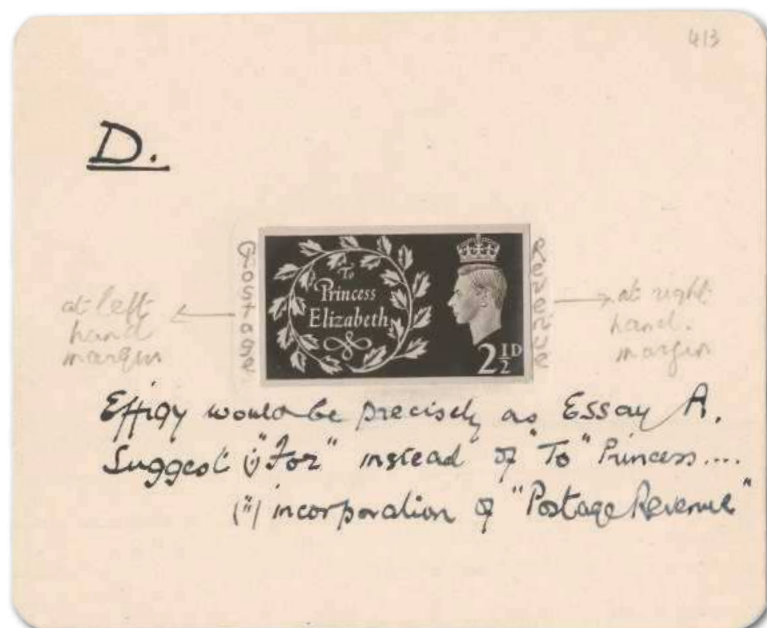 413
D.
Postage
To
Princess
Elizabeth
2½D
Revenue
at left
hand
margin
at right
hand.
margin
Effigy would be precisely as Essay A.
Suggest (i) "For" instead of "To" Princess....
(ii) incorporation of "Postage Revenue"